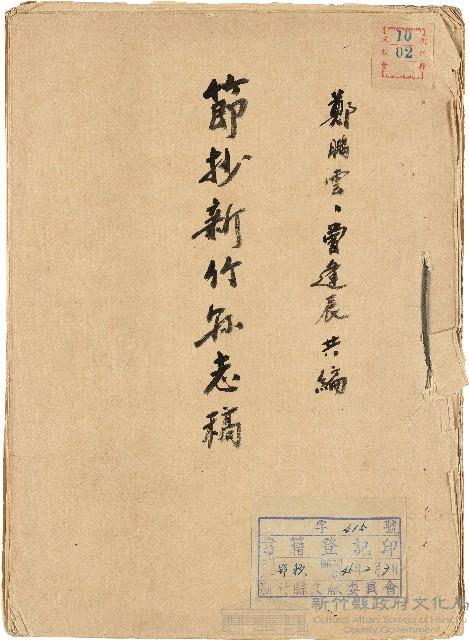 鄭鵬雲、曾逢辰共編
節抄新竹縣志稿
10
02
字 415 號
書籍登記印
新竹縣文獻委員會
新竹縣政府文化局
Cultural Affairs Bureau of Hsinchu
County Government